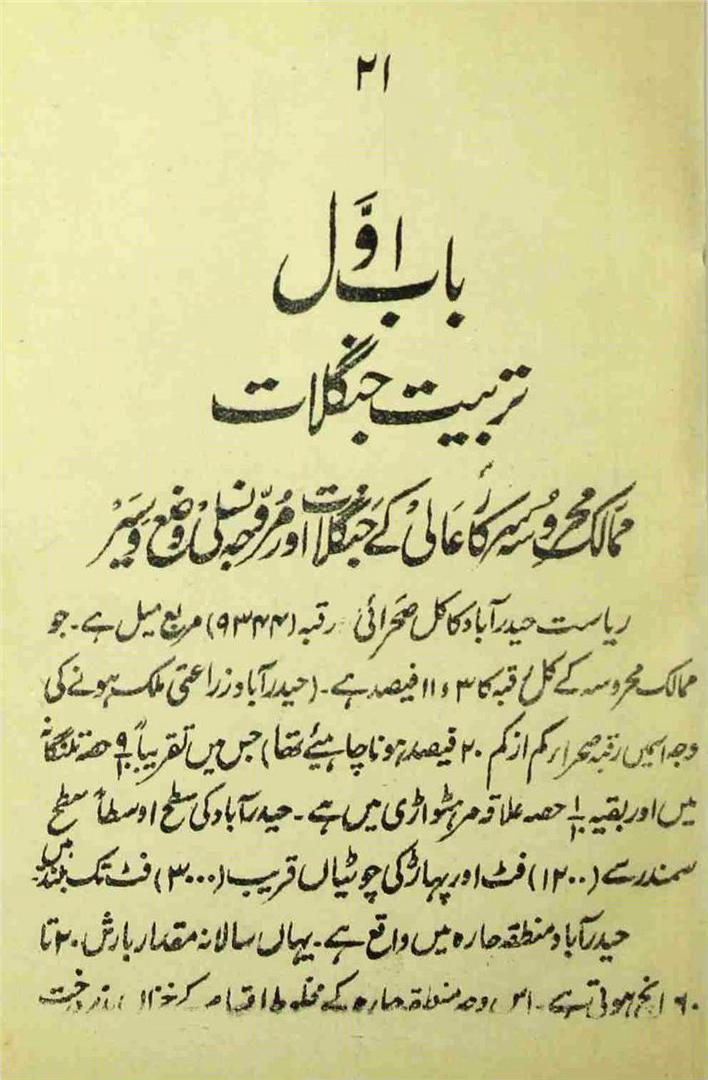 ۲۱
باب اوّل
تربیت جنگلات
ممالک محروسہ سرکار عالی کے جنگلات اور مُروّجہ نسلی وضع و
ریاست حیدرآباد کا کل صحرائی رقبہ (۹۳۴۴) مربع میل ہے۔ جو
ممالک محروسہ کے کل رقبہ کا ۱۱ء۳ فیصد ہے۔ (حیدرآباد زراعتی ملک ہونے کی
وجہ اسمیں رقبہ صحرا کم از کم ۲۰ فیصد ہونا چاہیئے تھا) جس میں تقریباً ۹/۱۰ حصہ تلنگانہ
میں اور بقیہ ۱/۱۰ حصہ علاقہ مرہٹواڑی میں ہے۔ حیدرآباد کی سطح اوسطاً سطح
سمندر سے (۱۲۰۰) فٹ اور پہاڑ کی چوٹیاں قریب (۳۰۰۰) فٹ تک بلند ہیں۔
حیدرآباد منطقہ حارہ میں واقع ہے۔ یہاں سالانہ مقدار بارش ۲۰ تا
۶۰ انچ ہوتی ہے۔ اس وجہ منطقہ حارہ کے مخلوط اقسام کے درخت